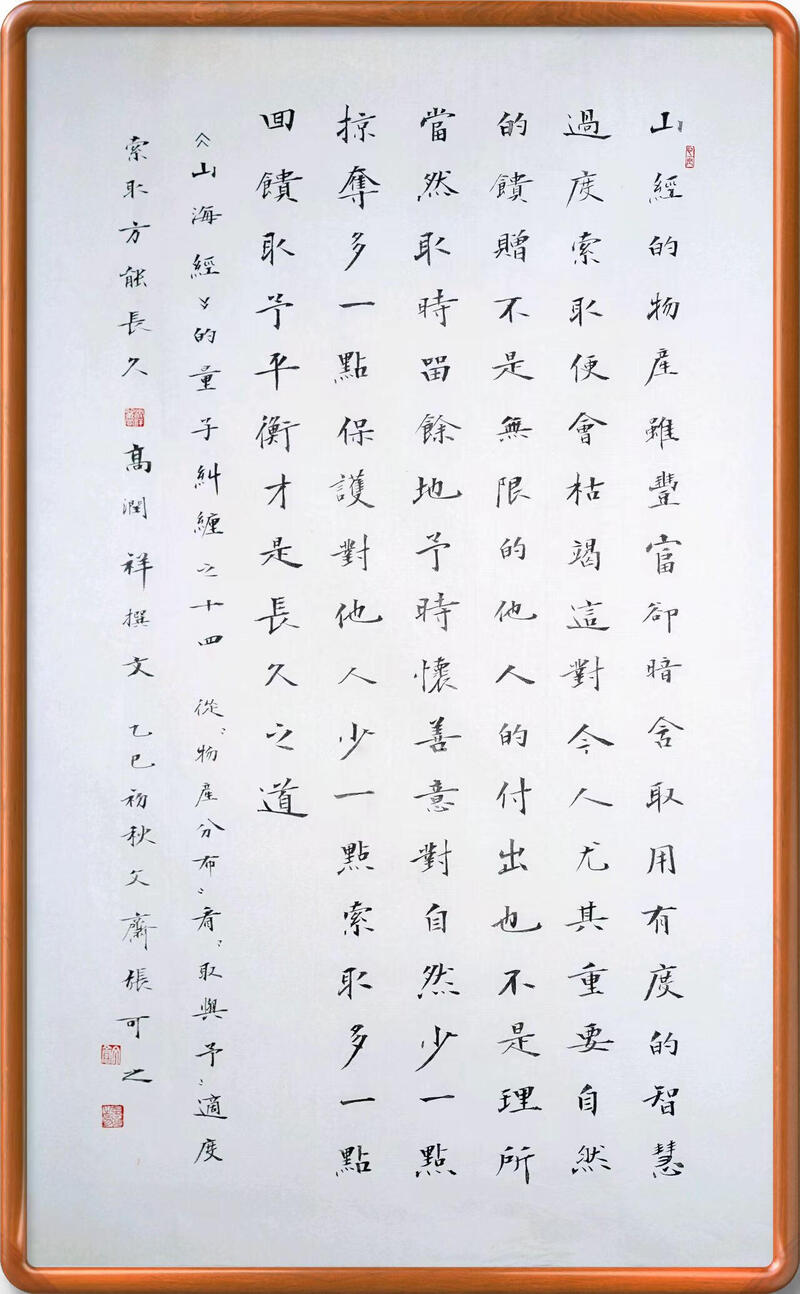 山經的物產雖豐富卻暗含取用有度的智慧
過度索取便會枯竭這對今人尤其重要自然
的饋贈不是無限的他人的付出也不是理所
當然取時留餘地予時懷善意對自然少一點
掠奪多一點保護對他人少一點索取多一點
回饋取予平衡才是長久之道
《山海經》的量子糾纏之十四 從“物產分布”看“取與予”適度
索取方能長久 高潤祥撰文 乙巳初秋文齋張可之